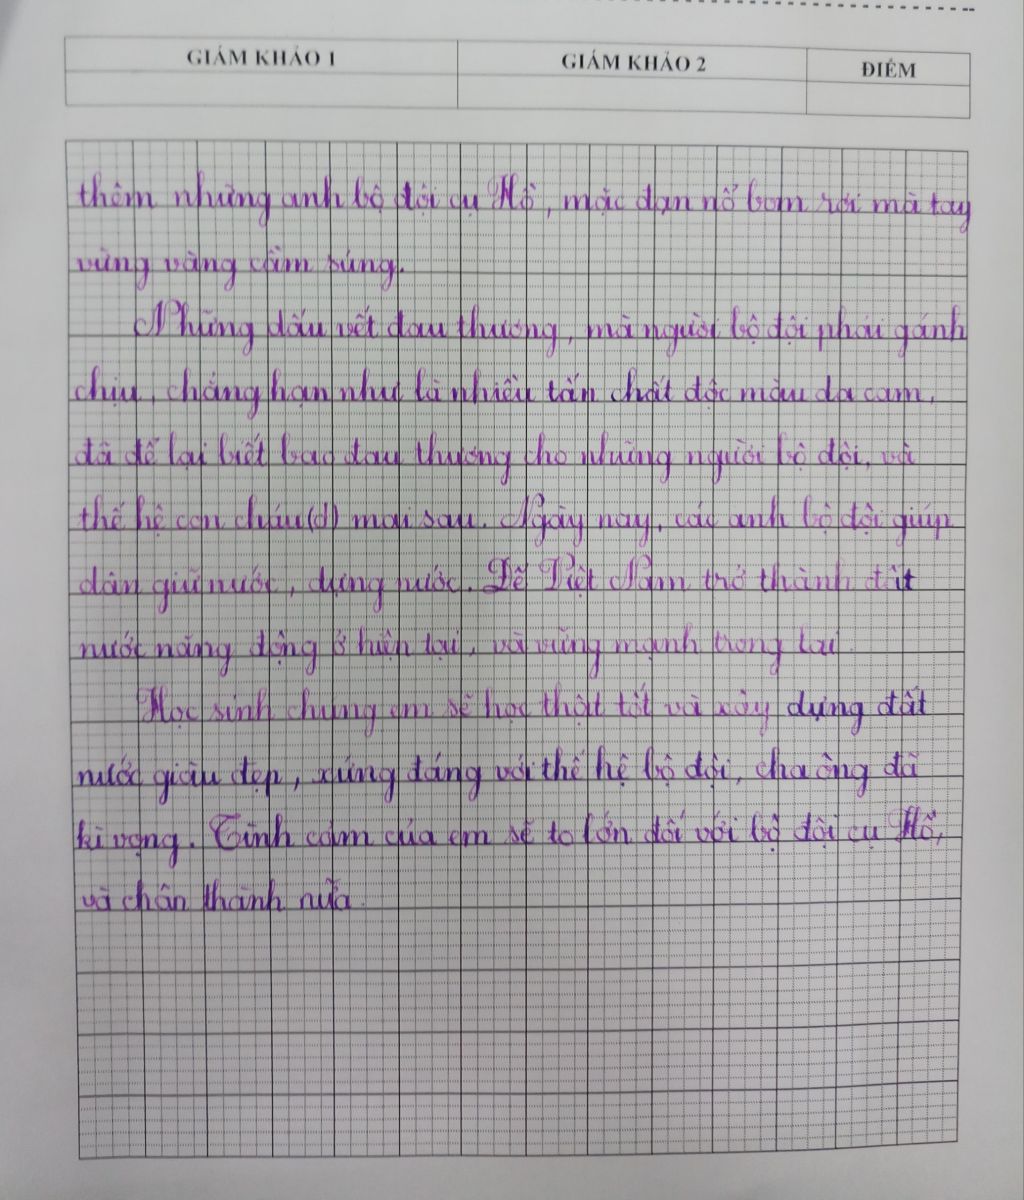 GIÁM KHẢO 1 GIÁM KHẢO 2 ĐIỂM
thêm những anh bộ đội cụ Hồ, mặc đạn nổ bom rơi mà tay
vững vàng cầm súng.
Những dấu vết đau thương, mà người bộ đội phải gánh
chịu, chẳng hạn như là nhiều tấn chất độc màu da cam,
đã để lại biết bao đau thương cho những người bộ đội, và
thế hệ con cháu(d) mai sau. Ngày nay, các anh bộ đội giúp
dân giữ nước, dựng nước. Để Việt Nam trở thành đất
nước năng động ở hiện tại, và vững mạnh trong lai.
Học sinh chúng em sẽ học thật tốt và xây dựng đất
nước giàu đẹp, xứng đáng với thế hệ bộ đội, cha ông đã
kì vọng. Tình cảm của em sẽ to lớn đối với bộ đội cụ Hồ,
và chân thành nữa.